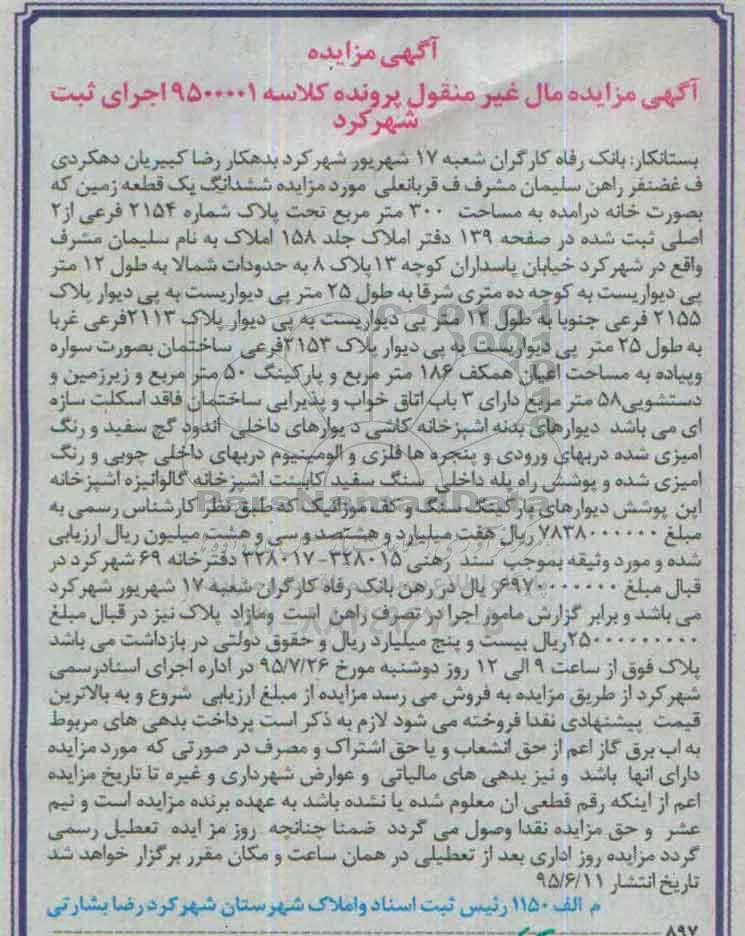 آگهی مزایده
آگهی مزایده مال غیر منقول پرونده کلاسه ۹۵۰۰۰۰۱ اجرای ثبت
شهرکرد
بستانکار: بانک رفاه کارگران شعبه ۱۷ شهریور شهرکرد بدهکار رضا کبیریان دهکردی
ف غضنفر راهن سلیمان مشرف ف قربانعلی مورد مزایده ششدانگ یک قطعه زمین که
بصورت خانه درامده به مساحت ۳۰۰ متر مربع تحت پلاک شماره ۲۱۵۴ فرعی از۲
اصلی ثبت شده در صفحه ۱۳۹ دفتر املاک جلد ۱۵۸ املاک به نام سلیمان مشرف
واقع در شهرکرد خیابان پاسداران کوچه ۱۳پلاک ۸ به حدودات شمالا به طول ۱۲ متر
پی دیواریست به کوچه ده متری شرقا به طول ۲۵ متر پی دیواریست به پی دیوار پلاک
۲۱۵۵ فرعی جنوبا به طول ۱۲ متر پی دیواریست به پی دیوار پلاک ۲۱۱۳فرعی غربا
به طول ۲۵ متر پی دیواریست به پی دیوار پلاک ۲۱۵۳فرعی ساختمان بصورت سواره
وپیاده به مساحت اعیان همکف ۱۸۶ متر مربع و پارکینگ ۵۰ متر مربع و زیرزمین و
دستشویی۵۸ متر مربع دارای ۳ باب اتاق خواب و پذیرایی ساختمان فاقد اسکلت سازه
ای می باشد دیوارهای بدنه اشپزخانه کاشی د یوارهای داخلی اندود گچ سفید و رنگ
امیزی شده دربهای ورودی و پنجره ها فلزی و الومینیوم دربهای داخلی چوبی و رنگ
امیزی شده و پوشش راه پله داخلی سنگ سفید کابینت اشپزخانه گالوانیزه اشپزخانه
اپن پوشش دیوارهای پارکینگ سنگ و کف موزائیک که طبق نظر کارشناس رسمی به
مبلغ ۷۸۳۸۰۰۰۰۰۰ ریال هفت میلیارد و هشتصد و سی و هشت میلیون ریال ارزیابی
شده و مورد وثیقه بموجب سند رهنی ۳۲۸۰۱۵-۳۲۸۰۱۷ دفترخانه ۶۹ شهرکرد در
قبال مبلغ ۶۹۷۰۰۰۰۰۰۰ر یال در رهن بانک رفاه کارگران شعبه ۱۷ شهریور شهرکرد
می باشد و برابر گزارش مامور اجرا در تصرف راهن است ومازاد پلاک نیز در قبال مبلغ
۲۵۰۰۰۰۰۰۰۰۰ریال بیست و پنج میلیارد ریال و حقوق دولتی در بازداشت می باشد
پلاک فوق از ساعت ۹ الی ۱۲ روز دوشنبه مورخ ۹۵/۷/۲۶ در اداره اجرای اسنادرسمی
شهرکرد از طریق مزایده به فروش می رسد مزایده از مبلغ ارزیابی شروع و به بالاترین
قیمت پیشنهادی نقدا فروخته می شود لازم به ذکر است پرداخت بدهی های مربوط
به اب برق گاز اعم از حق انشعاب و یا حق اشتراک و مصرف در صورتی که مورد مزایده
دارای انها باشد و نیز بدهی های مالیاتی و عوارض شهرداری و غیره تا تاریخ مزایده
اعم از اینکه رقم قطعی ان معلوم شده یا نشده باشد به عهده برنده مزایده است و نیم
عشر و حق مزایده نقدا وصول می گردد ضمنا چنانچه روز مز ایده تعطیل رسمی
گردد مزایده روز اداری بعد از تعطیلی در همان ساعت و مکان مقرر برگزار خواهد شد
تاریخ انتشار ۹۵/۶/۱۱
م الف ۱۱۵۰ رئیس ثبت اسناد واملاک شهرستان شهرکرد رضا بشارتی
۸۹۷
ParsNamadData